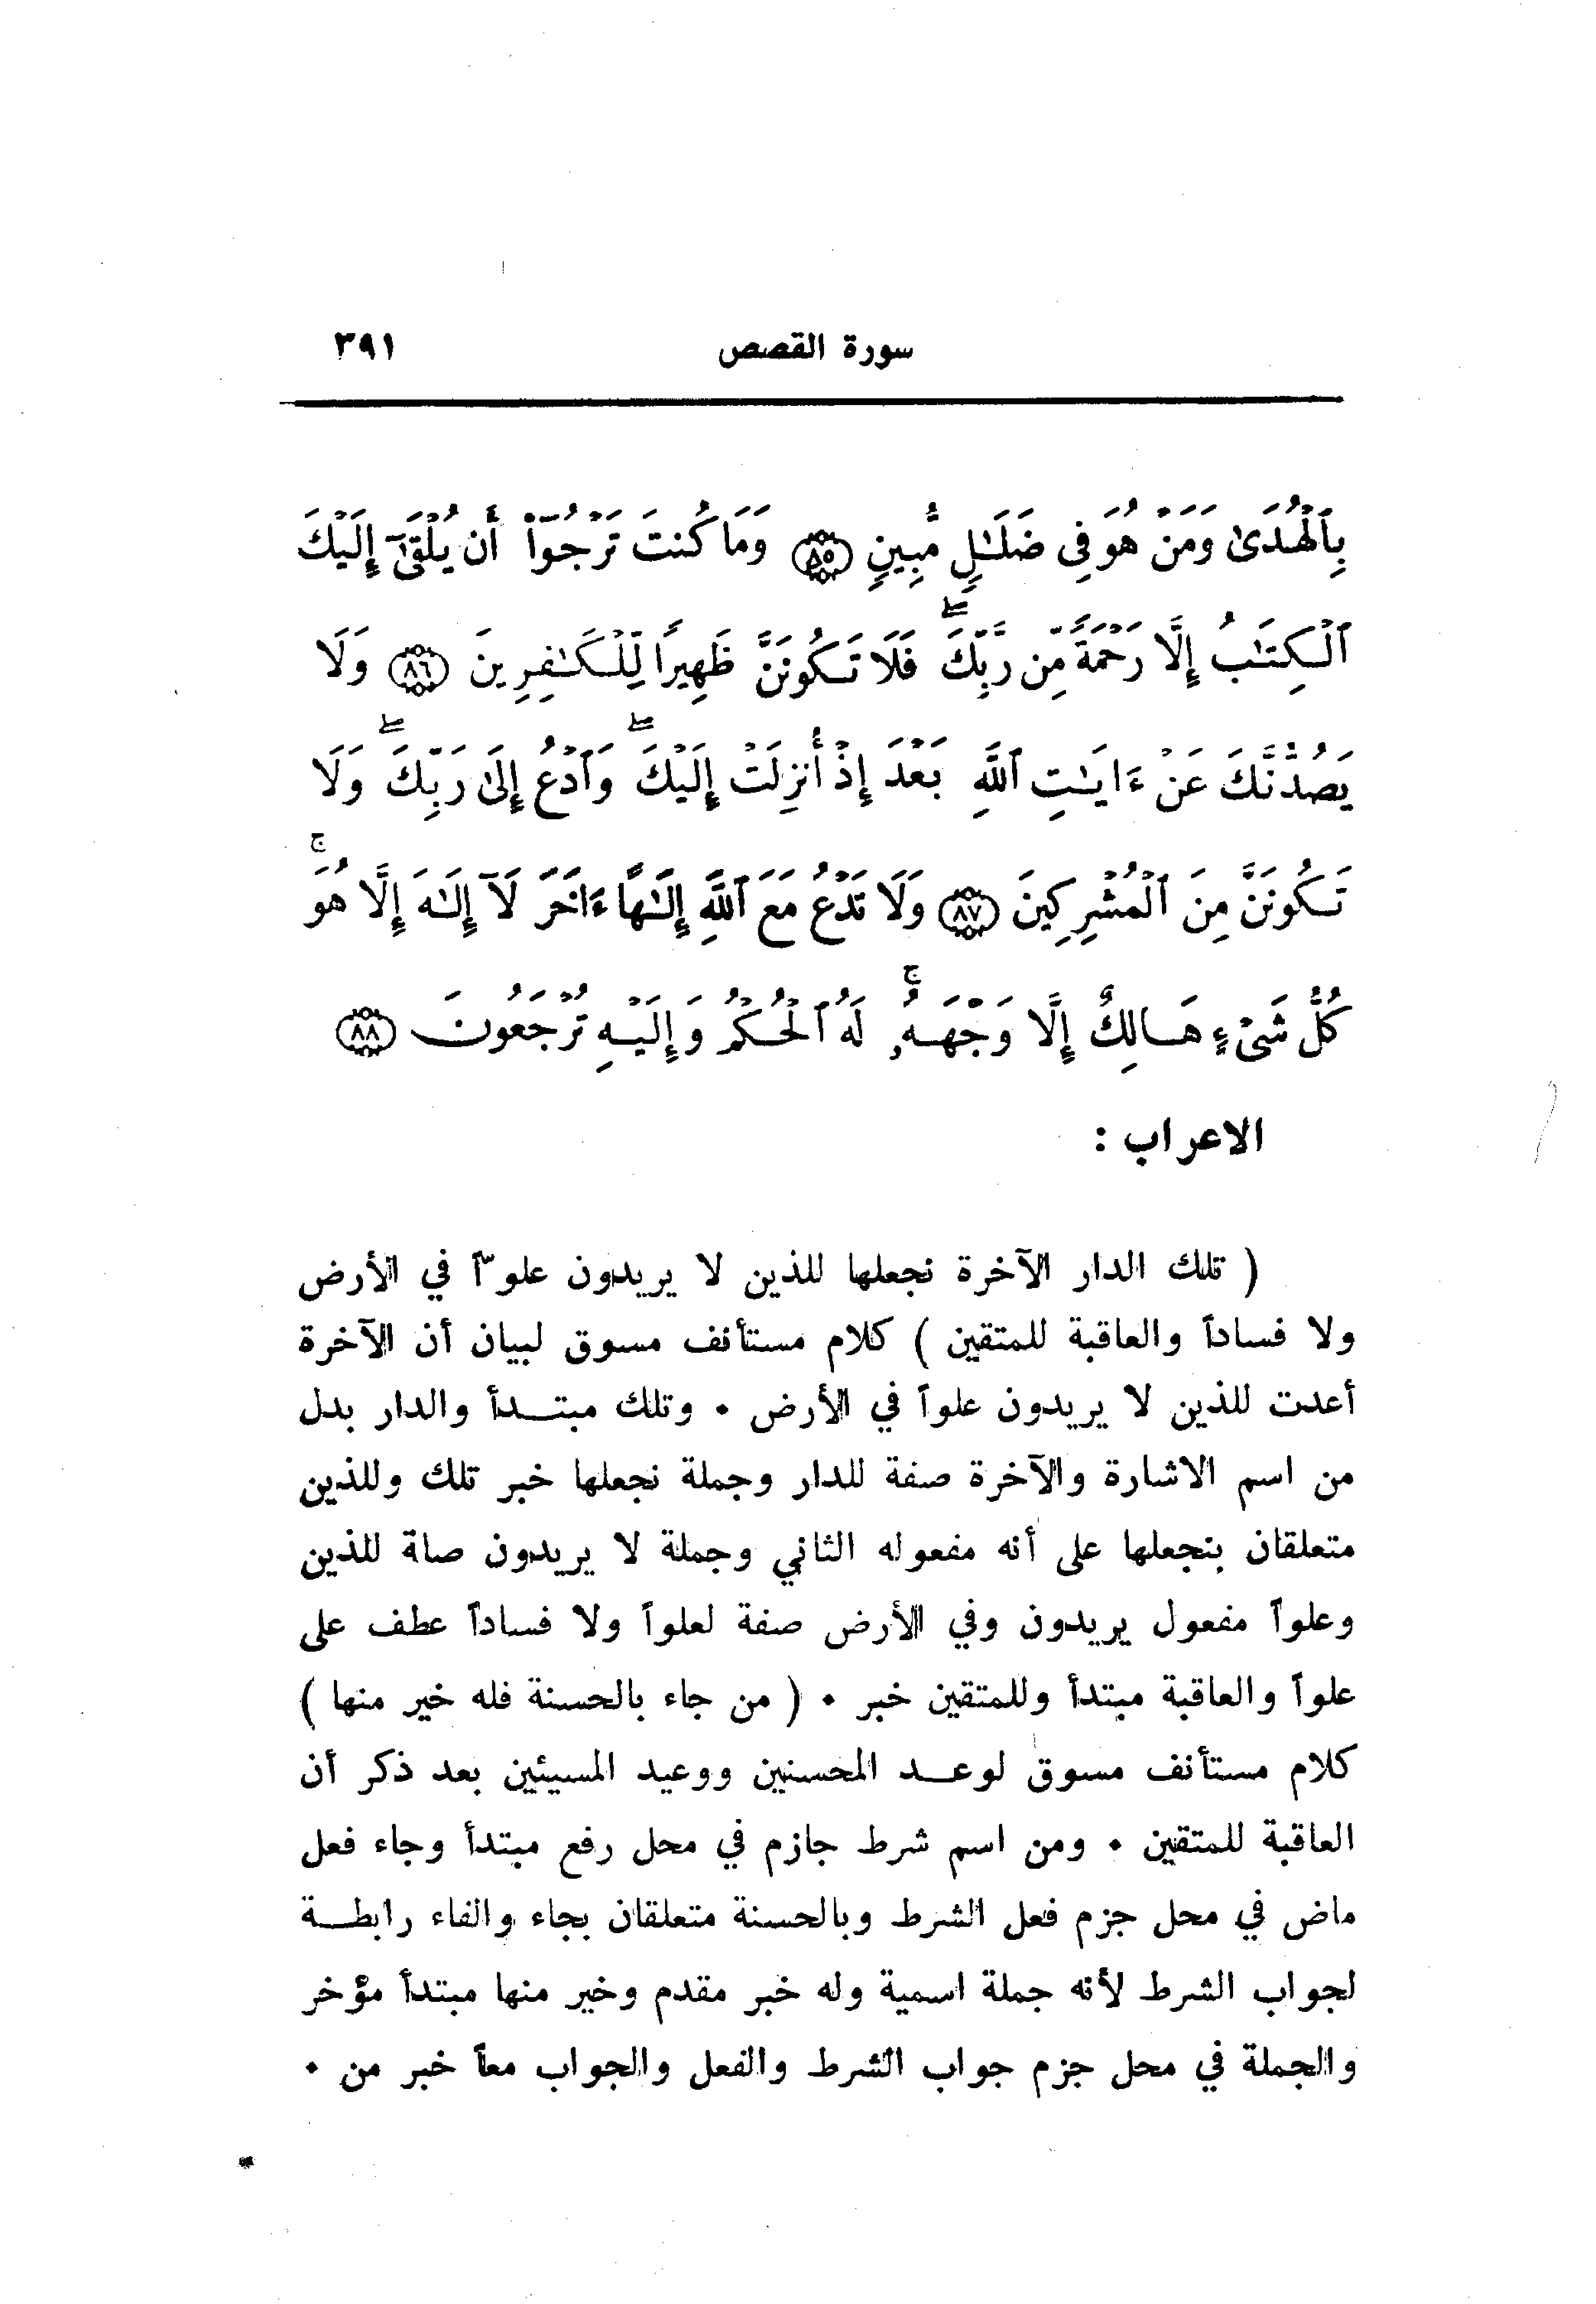 سورة القصص ٣٩١
بِٱلْهُدَىٰ وَمَنْ هُوَ فِى ضَلَـٰلٍ مُّبِينٍ ۝٨٥ وَمَا كُنتَ تَرْجُوٓا۟ أَن يُلْقَىٰٓ إِلَيْكَ
ٱلْكِتَـٰبُ إِلَّا رَحْمَةً مِّن رَّبِّكَ ۖ فَلَا تَكُونَنَّ ظَهِيرًا لِّلْكَـٰفِرِينَ ۝٨٦ وَلَا
يَصُدُّنَّكَ عَنْ ءَايَـٰتِ ٱللَّهِ بَعْدَ إِذْ أُنزِلَتْ إِلَيْكَ ۖ وَٱدْعُ إِلَىٰ رَبِّكَ ۖ وَلَا
تَكُونَنَّ مِنَ ٱلْمُشْرِكِينَ ۝٨٧ وَلَا تَدْعُ مَعَ ٱللَّهِ إِلَـٰهًا ءَاخَرَ لَآ إِلَـٰهَ إِلَّا هُوَ ۚ
كُلُّ شَىْءٍ هَالِكٌ إِلَّا وَجْهَهُۥ ۚ لَهُ ٱلْحُكْمُ وَإِلَيْهِ تُرْجَعُونَ ۝٨٨
الاعراب :
( تلك الدار الآخرة نجعلها للذين لا يريدون علوّاً في الأرض
ولا فساداً والعاقبة للمتقين ) كلام مستأنف مسوق لبيان أن الآخرة
أعدت للذين لا يريدون علواً في الأرض ٠ وتلك مبتدأ والدار بدل
من اسم الاشارة والآخرة صفة للدار وجملة نجعلها خبر تلك وللذين
متعلقان بنجعلها على أنه مفعوله الثاني وجملة لا يريدون صلة للذين
وعلواً مفعول يريدون وفي الأرض صفة لعلواً ولا فساداً عطف على
علواً والعاقبة مبتدأ وللمتقين خبر ٠ ( من جاء بالحسنة فله خير منها )
كلام مستأنف مسوق لوعد المحسنين ووعيد المسيئين بعد ذكر أن
العاقبة للمتقين ٠ ومن اسم شرط جازم في محل رفع مبتدأ وجاء فعل
ماض في محل جزم فعل الشرط وبالحسنة متعلقان بجاء والفاء رابطة
لجواب الشرط لأنه جملة اسمية وله خبر مقدم وخير منها مبتدأ مؤخر
والجملة في محل جزم جواب الشرط والفعل والجواب معاً خبر من ٠